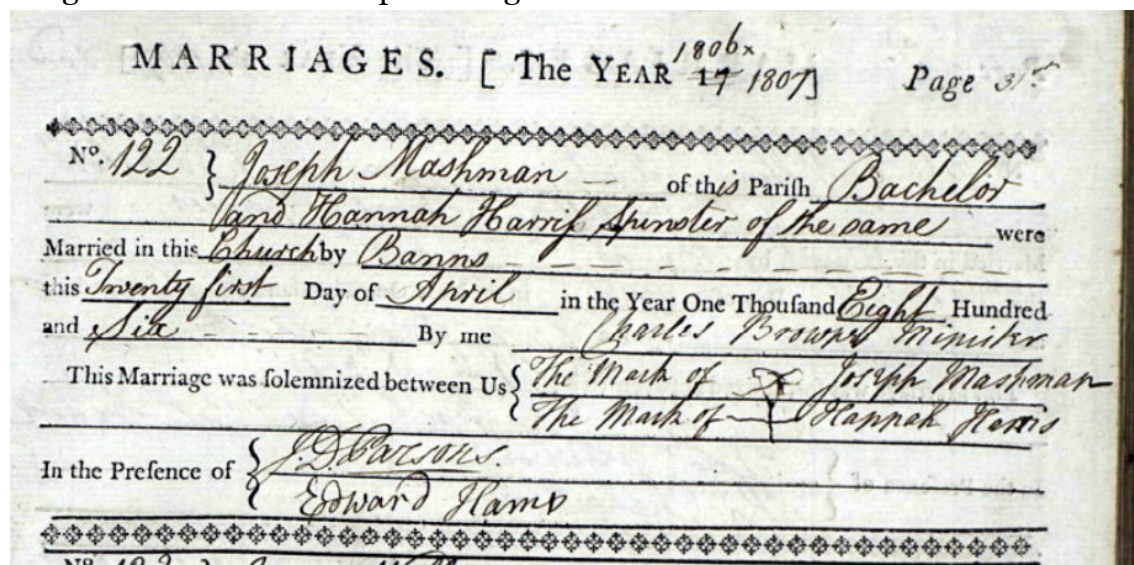 MARRIAGES. [ The YEAR 1806 x 17 1807] Page 31st
No. 122 } Joseph Mashman of this Pariſh Bachelor
and Hannah Harriſs Spinster of the same were
Married in this Church by Banns
this Twenty first Day of April in the Year One Thouſand Eight Hundred
and Six By me Charles Brown Minister
This Marriage was ſolemnized between Us { The Mark of X Joseph Mashman
The Mark of Hannah Harris
In the Preſence of { J. D. Parsons.
Edward